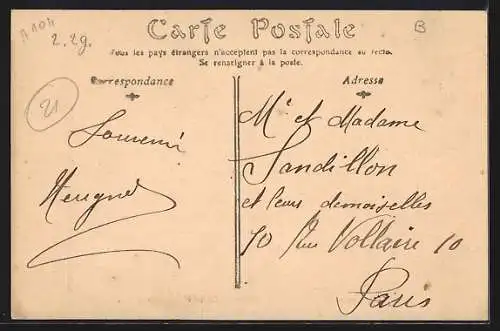 A104
2.29.
B
Carte Postale
Tous les pays étrangers n'acceptent pas la correspondance au recto.
Se renseigner à la poste.
Correspondance
Adresse
21
Souvenir
Mr et Madame
Sandillon
et leurs demoiselles
70 Rue Voltaire 10
Paris